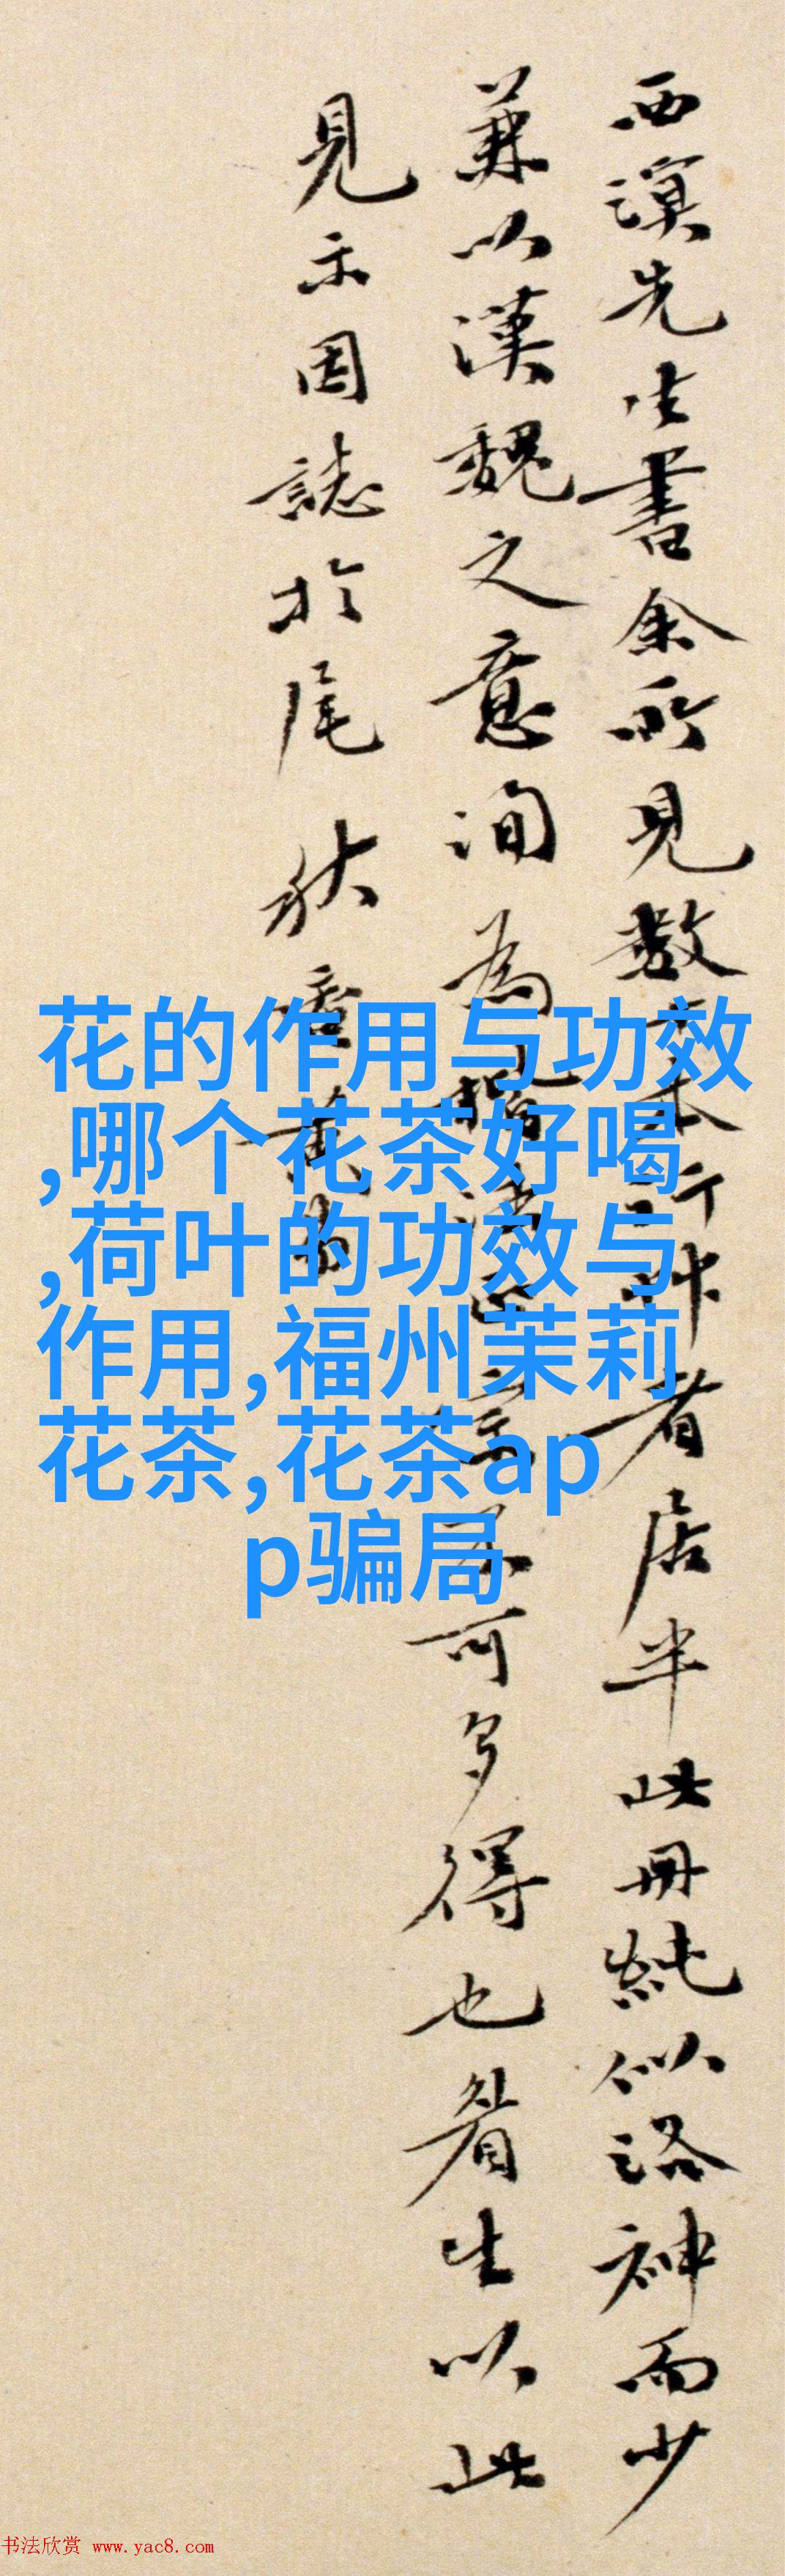 西溟先生書余所見數本行者居半此冊純似洛神而少
兼以漢魏之意洵為楷法正宗不可多得也眉生以此
見示因誌於尾 秋盦黃易
花的作用与功效
,哪个花茶好喝
,荷叶的功效与
作用,福州茉莉
花茶,花茶ap
p骗局
书法欣赏 www.yac8.com